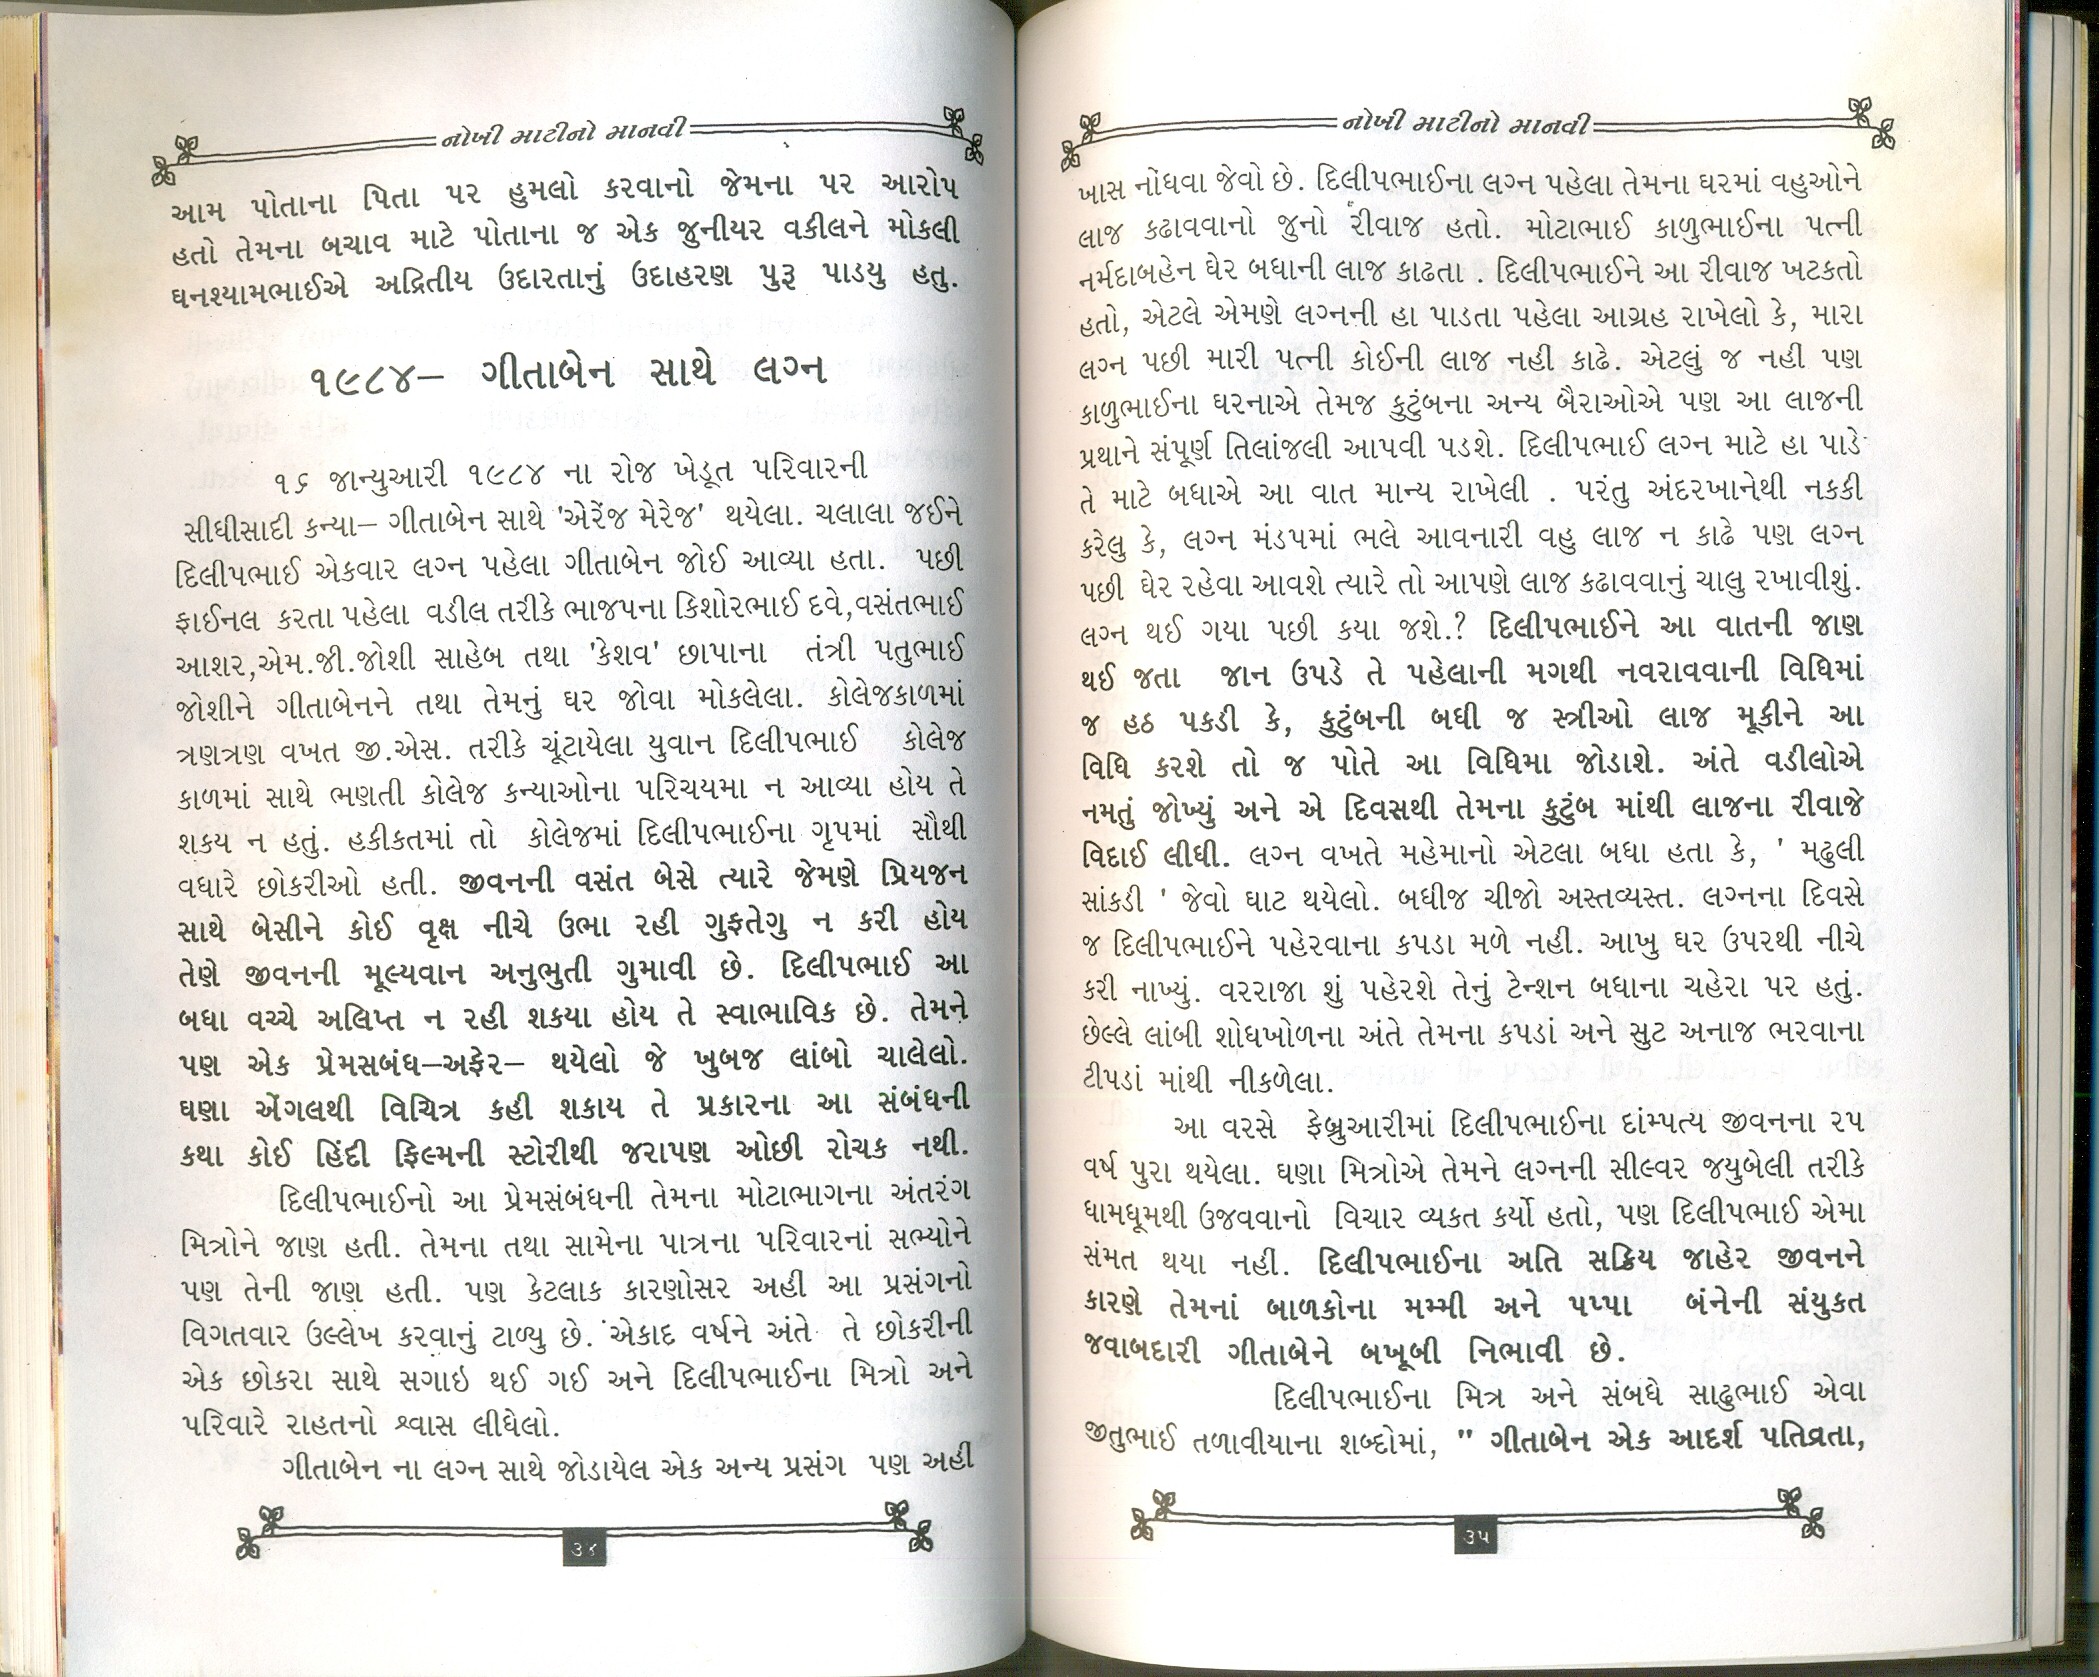 નોખી માટીનો માનવી
આમ પોતાના પિતા પર હુમલો કરવાનો જેમના પર આરોપ
હતો તેમના બચાવ માટે પોતાના જ એક જુનીયર વકીલને મોકલી
ઘનશ્યામભાઈએ અદ્રિતીય ઉદારતાનું ઉદાહરણ પુરૂ પાડયુ હતુ.
૧૯૮૪– ગીતાબેન સાથે લગ્ન
૧૬ જાન્યુઆરી ૧૯૮૪ ના રોજ ખેડૂત પરિવારની
સીધીસાદી કન્યા– ગીતાબેન સાથે 'એરેંજ મેરેજ' થયેલા. ચલાલા જઈને
દિલીપભાઈ એકવાર લગ્ન પહેલા ગીતાબેન જોઈ આવ્યા હતા. પછી
ફાઈનલ કરતા પહેલા વડીલ તરીકે ભાજપના કિશોરભાઈ દવે,વસંતભાઈ
આશર,એમ.જી.જોશી સાહેબ તથા 'કેશવ' છાપાના તંત્રી પતુભાઈ
જોશીને ગીતાબેનને તથા તેમનું ઘર જોવા મોકલેલા. કોલેજકાળમાં
ત્રણત્રણ વખત જી.એસ. તરીકે ચૂંટાયેલા યુવાન દિલીપભાઈ કોલેજ
કાળમાં સાથે ભણતી કોલેજ કન્યાઓના પરિચયમા ન આવ્યા હોય તે
શકય ન હતું. હકીકતમાં તો કોલેજમાં દિલીપભાઈના ગૃપમાં સૌથી
વધારે છોકરીઓ હતી. જીવનની વસંત બેસે ત્યારે જેમણે પ્રિયજન
સાથે બેસીને કોઈ વૃક્ષ નીચે ઉભા રહી ગુફતેગુ ન કરી હોય
તેણે જીવનની મૂલ્યવાન અનુભુતી ગુમાવી છે. દિલીપભાઈ આ
બધા વચ્ચે અલિપ્ત ન રહી શકયા હોય તે સ્વાભાવિક છે. તેમને
પણ એક પ્રેમસબંધ–અફેર– થયેલો જે ખુબજ લાંબો ચાલેલો.
ઘણા એંગલથી વિચિત્ર કહી શકાય તે પ્રકારના આ સંબંધની
કથા કોઈ હિંદી ફિલ્મની સ્ટોરીથી જરાપણ ઓછી રોચક નથી.
દિલીપભાઈનો આ પ્રેમસંબંધની તેમના મોટાભાગના અંતરંગ
મિત્રોને જાણ હતી. તેમના તથા સામેના પાત્રના પરિવારનાં સભ્યોને
પણ તેની જાણ હતી. પણ કેટલાક કારણોસર અહી આ પ્રસંગનો
વિગતવાર ઉલ્લેખ કરવાનું ટાળ્યુ છે. એકાદ વર્ષને અંતે તે છોકરીની
એક છોકરા સાથે સગાઇ થઈ ગઈ અને દિલીપભાઈના મિત્રો અને
પરિવારે રાહતનો શ્વાસ લીધેલો.
ગીતાબેન ના લગ્ન સાથે જોડાયેલ એક અન્ય પ્રસંગ પણ અહી
૩૪
નોખી માટીનો માનવી
ખાસ નોંધવા જેવો છે. દિલીપભાઈના લગ્ન પહેલા તેમના ઘરમાં વહુઓને
લાજ કઢાવવાનો જુનો રીવાજ હતો. મોટાભાઈ કાળુભાઈના પત્ની
નર્મદાબહેન ઘેર બધાની લાજ કાઢતા . દિલીપભાઈને આ રીવાજ ખટકતો
હતો, એટલે એમણે લગ્નની હા પાડતા પહેલા આગ્રહ રાખેલો કે, મારા
લગ્ન પછી મારી પત્ની કોઈની લાજ નહી કાઢે. એટલું જ નહી પણ
કાળુભાઈના ઘરનાએ તેમજ કુટુંબના અન્ય બૈરાઓએ પણ આ લાજની
પ્રથાને સંપૂર્ણ તિલાંજલી આપવી પડશે. દિલીપભાઈ લગ્ન માટે હા પાડે
તે માટે બધાએ આ વાત માન્ય રાખેલી . પરંતુ અંદરખાનેથી નકકી
કરેલુ કે, લગ્ન મંડપમાં ભલે આવનારી વહુ લાજ ન કાઢે પણ લગ્ન
પછી ઘેર રહેવા આવશે ત્યારે તો આપણે લાજ કઢાવવાનું ચાલુ રખાવીશું.
લગ્ન થઈ ગયા પછી કયા જશે.? દિલીપભાઈને આ વાતની જાણ
થઈ જતા જાન ઉપડે તે પહેલાની મગથી નવરાવવાની વિધિમાં
જ હઠ પકડી કે, કુટુંબની બધી જ સ્ત્રીઓ લાજ મૂકીને આ
વિધિ કરશે તો જ પોતે આ વિધિમા જોડાશે. અંતે વડીલોએ
નમતું જોખ્યું અને એ દિવસથી તેમના કુટુંબ માંથી લાજના રીવાજે
વિદાઈ લીધી. લગ્ન વખતે મહેમાનો એટલા બધા હતા કે, ' મઢુલી
સાંકડી ' જેવો ઘાટ થયેલો. બધીજ ચીજો અસ્તવ્યસ્ત. લગ્નના દિવસે
જ દિલીપભાઈને પહેરવાના કપડા મળે નહી. આખુ ઘર ઉપરથી નીચે
કરી નાખ્યું. વરરાજા શું પહેરશે તેનું ટેન્શન બધાના ચહેરા પર હતું.
છેલ્લે લાંબી શોધખોળના અંતે તેમના કપડાં અને સુટ અનાજ ભરવાના
ટીપડાં માંથી નીકળેલા.
આ વરસે ફેબ્રુઆરીમાં દિલીપભાઈના દાંમ્પત્ય જીવનના ૨૫
વર્ષ પુરા થયેલા. ઘણા મિત્રોએ તેમને લગ્નની સીલ્વર જયુબેલી તરીકે
ધામધૂમથી ઉજવવાનો વિચાર વ્યકત કર્યો હતો, પણ દિલીપભાઈ એમા
સંમત થયા નહી. દિલીપભાઈના અતિ સક્રિય જાહેર જીવનને
કારણે તેમનાં બાળકોના મમ્મી અને પપ્પા બંનેની સંયુકત
જવાબદારી ગીતાબેને બખૂબી નિભાવી છે.
દિલીપભાઈના મિત્ર અને સંબધે સાઢુભાઈ એવા
જીતુભાઈ તળાવીયાના શબ્દોમાં, " ગીતાબેન એક આદર્શ પતિવ્રતા,
૩૫